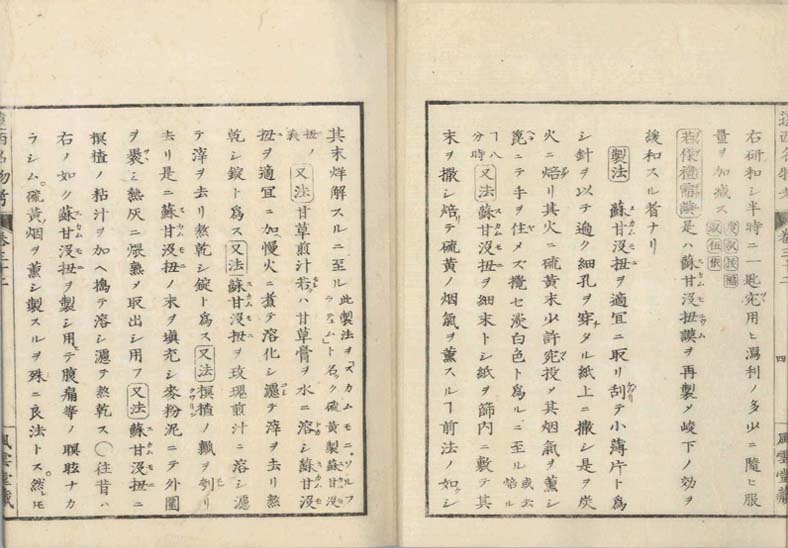 右研和シ半時ニ一匙宛用ヒ瀉利ノ多少ニ隨ヒ服
量ヲ加減ス
是ハ蘇甘沒扭謨ヲ再製メ峻下ノ効ヲ
緩和スル者ナリ
製法 蘇甘沒扭ヲ適宜ニ取リ刮テ小薄片ト爲
シ針ヲ以テ遍ク細孔ヲ穿タル紙上ニ撒シ是ヲ炭
火ニ焙リ其火ニ硫黄末少許宛投メ其烟氣ヲ薫シ
篦ニテ手ヲ住メズ攪セ淡白色ト爲ルニ至ル 或云焙ルヿ八分時
又法 蘇甘沒扭ヲ細末トシ紙ヲ篩内ニ敷テ其
末ヲ撒シ焙テ硫黄ノ烟氣ヲ薫スルヿ前法ノ如シ
四
風雲堂藏
其末烊解スルニ至ル 此製法ヲ「スカムモニ、ソルフラテュム」ト名ク硫黄製蘇甘沒扭ノ義
又法 甘草煎汁若クハ甘草膏ヲ水ニ溶シ蘇甘沒
扭ヲ適宜ニ加慢火ニ煮テ溶化シ濾テ滓ヲ去リ熬
乾シ錠ト爲ス 又法 蘇甘沒扭ヲ玫瑰煎汁ニ溶シ濾
テ滓ヲ去リ熬乾シ錠ト爲ス 又法 榠樝ノ瓤ヲ刳リ
去リ是ニ蘇甘沒扭ノ末ヲ塡充シ麥粉泥ニテ外圍
ヲ裹ミ熱灰ニ煨熟メ取出シ用フ 又法 蘇甘沒扭ニ
榠樝ノ粘汁ヲ加ヘ擣テ溶シ濾テ熬乾ス○往昔ハ
右ノ如ク蘇甘沒扭ヲ製シ用テ腹痛等ノ瞑眩ナカ
ラシム。硫黄烟ヲ薫シ製スルヲ殊ニ良法トス。然レモ
遠西名物考
卷三十二
風雲堂藏